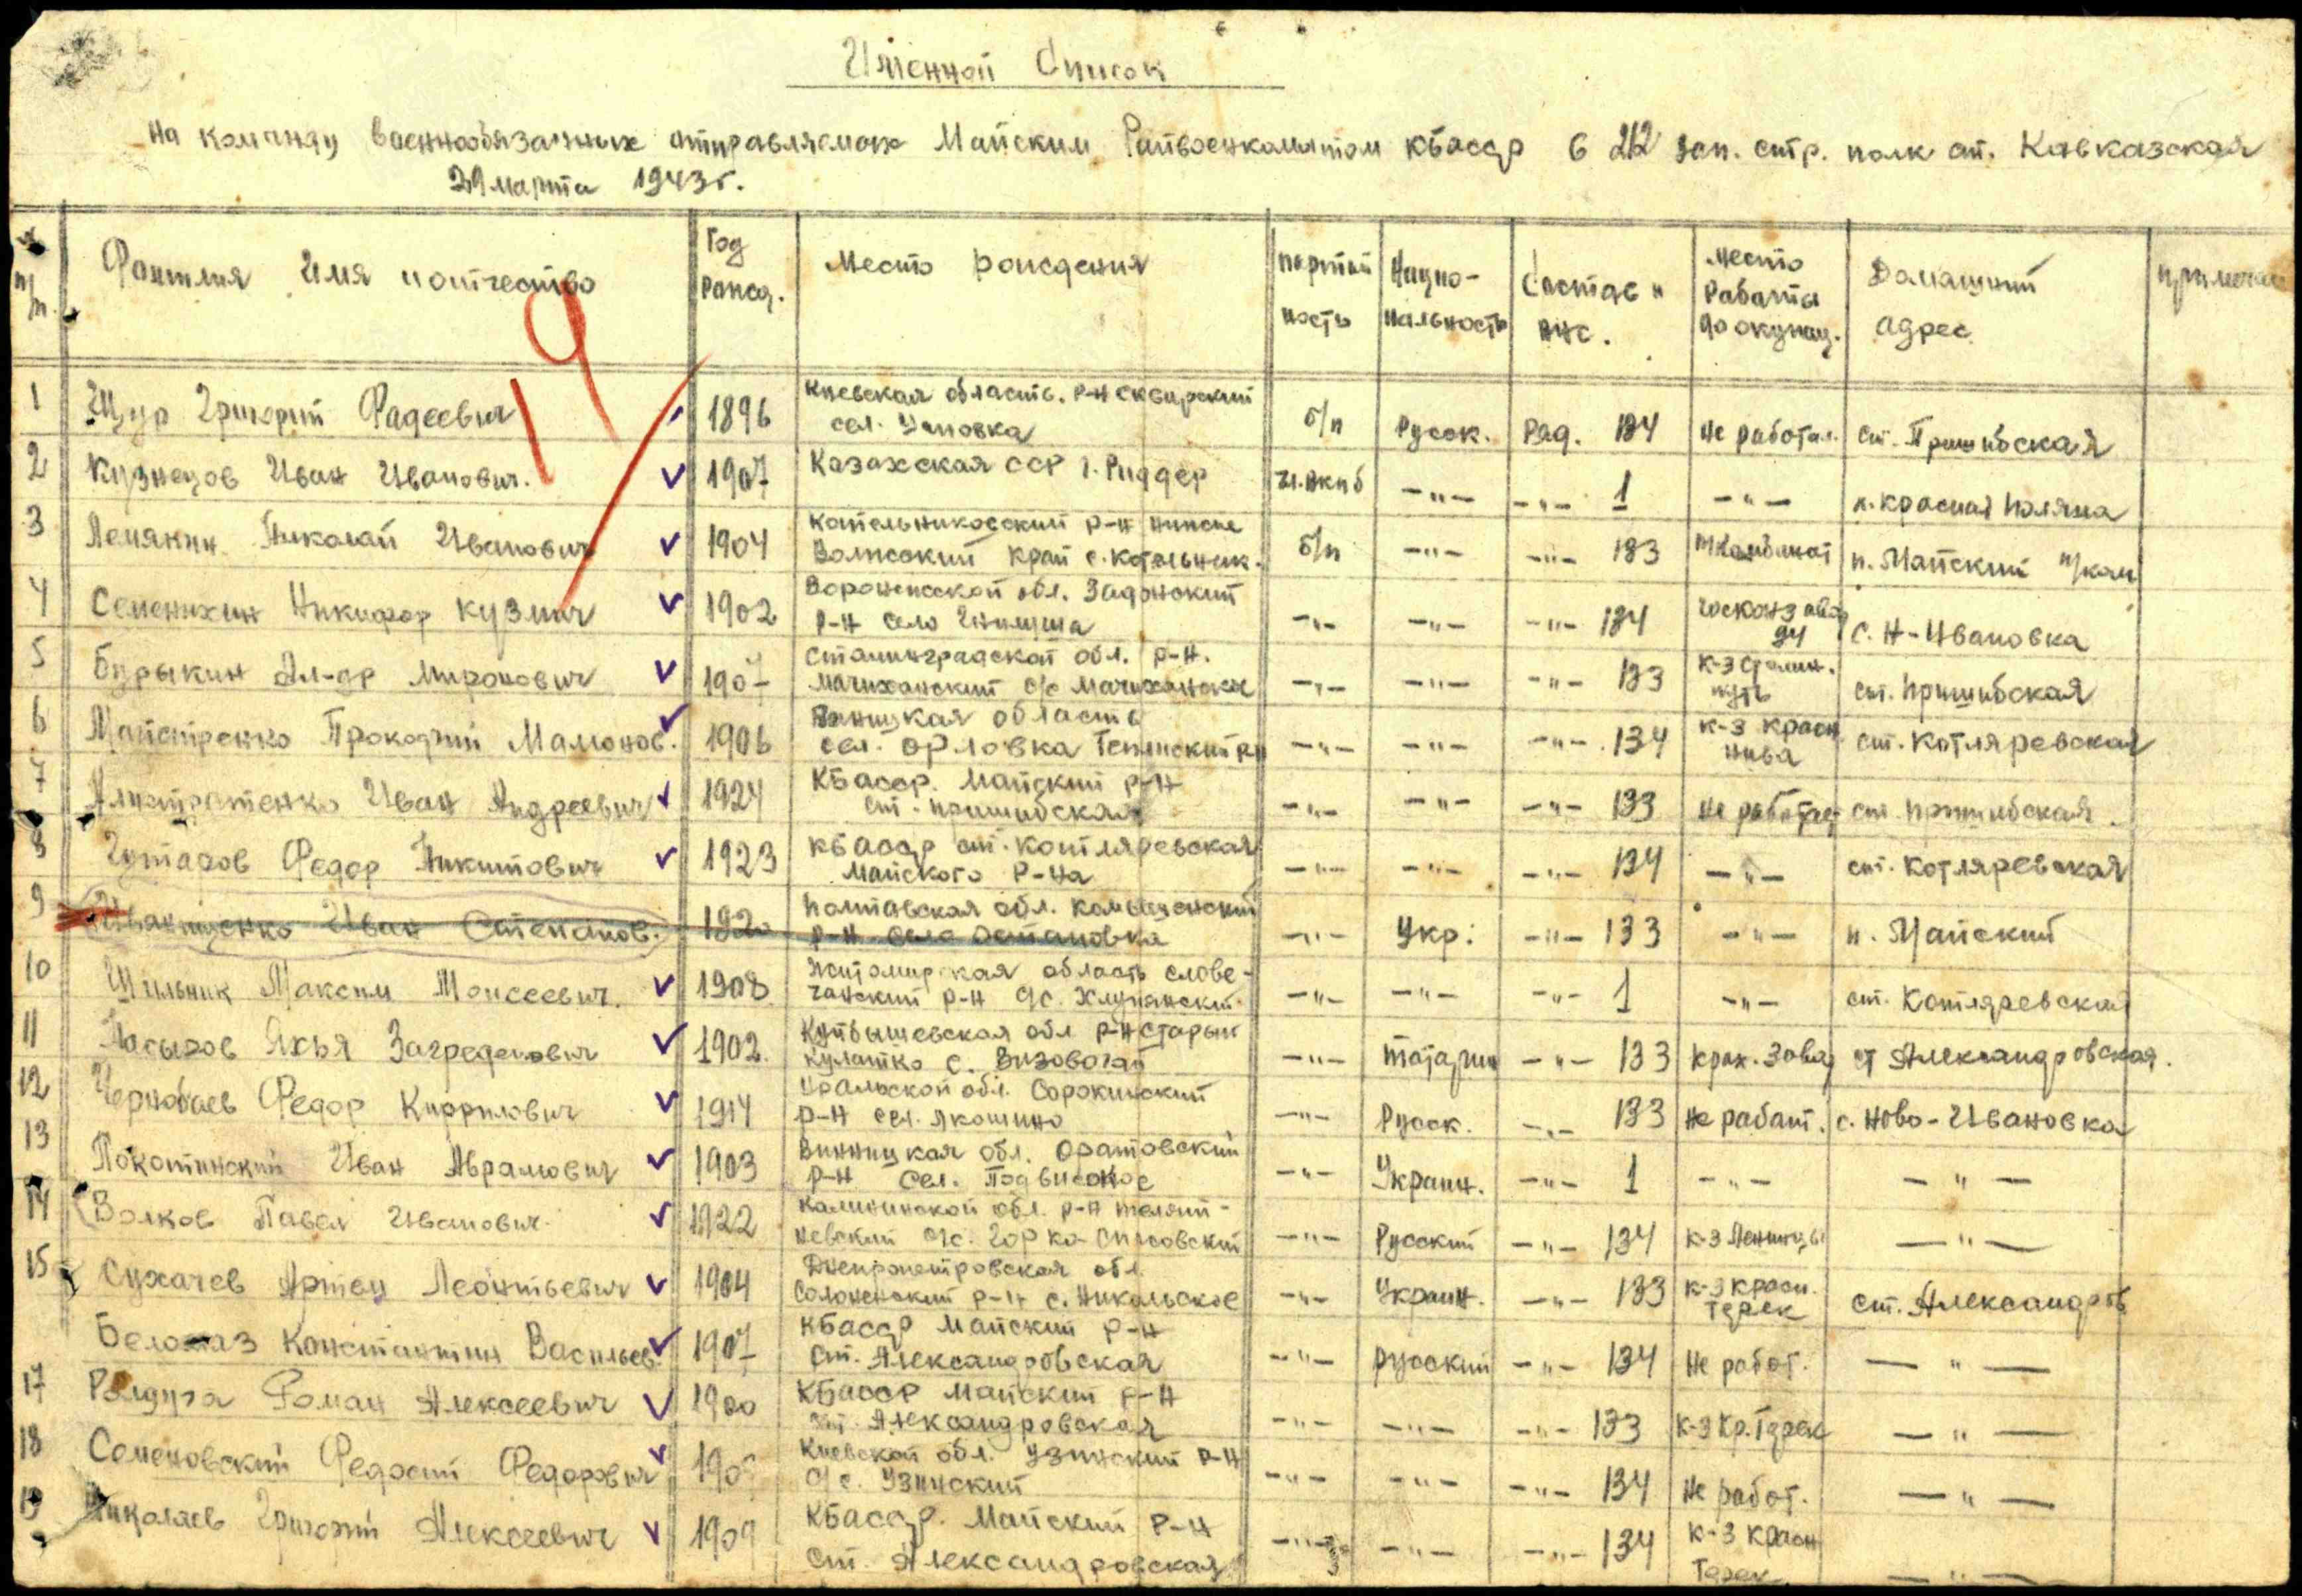 Именной Список
на команду военнообязанных отправляемых Майским Райвоенкоматом кбасср в 212 зап. стр. полк ст. Кавказская
29 марта 1943 г.
№ п/п. Фамилия Имя и отчество Год рожд. Место рождения партий ность Нацио- нальность Состав и вус. Место работы до оккупац. Домашний адрес примечан
19
1 Щур Григорий Фадеевич 1896 Киевская область. р-н Сквирский
сел. б/п Русск. Ряд. 134 не работал. ст. Пришибская
2 Кузнецов Иван Иванович. 1907 Казахская ССР г. Риддер чл. вкпб -"- -"- 1 -"- п. Красная Поляна
3 Лемякин Николай Иванович 1904 Котельниковский р-н нижне
Волжский край с. Котельник. б/п -"- -"- 133 п. Майский
4 Семенихин Никифор Кузмич 1902 Воронежской обл. Задонский
р-н село -"- -"- -"- 134 с. Н-Ивановка
5 Бурыкин Ал-др Миронович 1907 Сталинградской обл. р-н.
Мачиханский с/с -"- -"- -"- 133 к-з Сталин. путь ст. Пришибская
6 Майстренко Прокофий Мамонов. 1906 Виницкая область
сел. Орловка -"- -"- -"- 134 к-з Красн нива ст. Котляревская
7 Иван Андреевич 1924 КБасср. Майский р-н
ст. пришибская -"- -"- -"- 133 не работает ст. пришибская
8 Федор Никитович 1923 кбасср ст. Котляревская
Майского р-на -"- -"- -"- 134 -"- ст. Котляревская
9 Иванищенко Иван Степанов. 1920 Полтавская обл. Комышенский
р-н село Остановка -"- Укр. -"- 133 -"- п. Майский
10 Шильник Максим Моисеевич. 1908 Житомирская область слове-
чанский р-н с/с. -"- -"- -"- 1 -"- ст. Котляревская
11 Яхья 1902. Куйбышевская обл р-н Старый
Кулатко с. -"- татарин -"- 133 ст Александровская.
12 Чернобаев Федор Кириллович 1914 Уральской обл. Сорокинский
р-н сел. Якошино -"- Русск. -"- 133 не работ. с. Ново-Ивановка
13 Локотинский Иван Абрамович 1903 Винницкая обл. Оратовский
р-н сел. Подвисокое -"- Украин. -"- 1 -"- -"-
14 Волков Павел Иванович. 1922 Калининской обл. р-н
-"- Русский -"- 134 -"-
15 Сухачев Артем Леонтьевич 1904 Днепропетровская обл.
Солоненский р-н с. Никольское -"- Украин. -"- 133 к-з красн. Терек ст. Александров
Белоказ Константин Васильев. 1907 КБасср Майский р-н
ст. Александровская -"- русский -"- 134 не работ. -"-
17 Роман Алексеевич 1900 КБасср Майский р-н
ст. Александровская -"- -"- -"- 133 к-з Кр. Терек -"-
18 Семеновский Федосий Федорович Киевской обл. Узинский р-н
с/с. Узинский -"- -"- -"- 134 не работ. -"-
19 Николаев Григорий Алексеевич 1909 КБасср. Майский р-н
ст. Александровская -"- -"- -"- 134 к-з красн Терек -"-